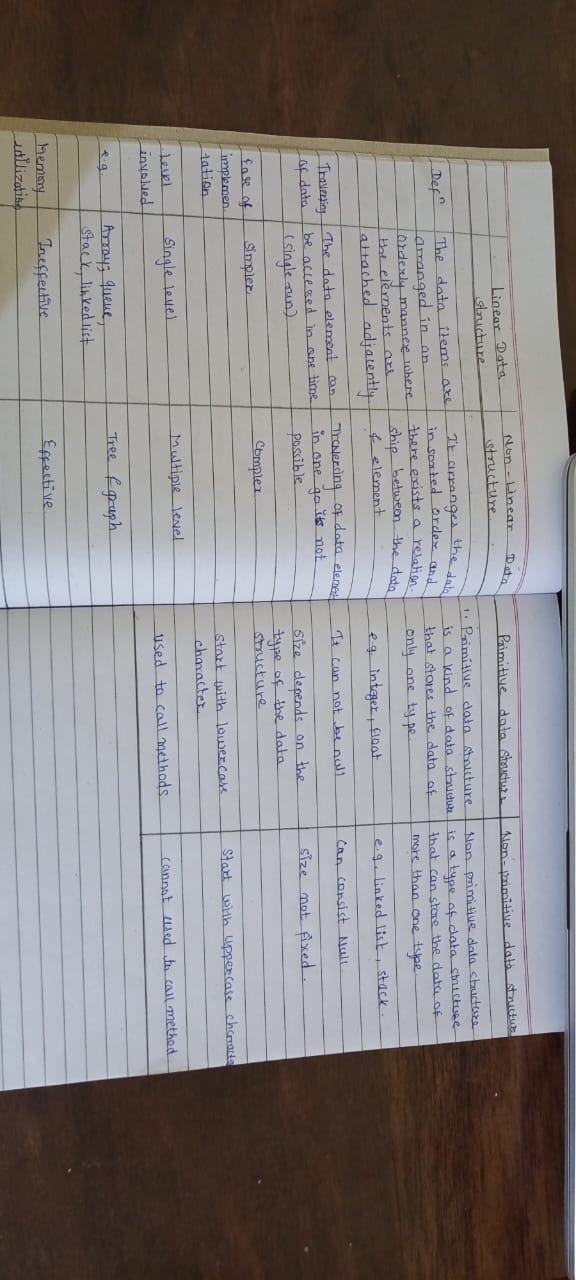 Linear Data
structure
Non-Linear Data
structure
Defn
The data items are
arranged in an
orderly manner where
the elements are
attached adjacently
It arranges the data
in sorted order and
there exists a relation-
ship between the data
& element
Traversing
of data
The data element can
be accessed in one time
(single run)
Traversing of data element
in one go is not
possible
Ease of
implemen
tation
Simpler
Complex
Level
involved
Single level
Multiple level
e.g.
Arrays, queue,
stack, linked list
Tree & graph
Memory
utilization
Ineffective
Effective.
Primitive data structure
Non-primitive data structure
1. Primitive data structure
is a kind of data structure
that stores the data of
only one type
Non primitive data structure
is a type of data structure
that can store the data of
more than one type
e.g. integer, float
e.g. linked list, stack.
It can not be null
Can consist Null
Size depends on the
type of the data
structure
size not fixed.
Start with lowercase
character
Start with uppercase character
Used to call methods
cannot used to call method